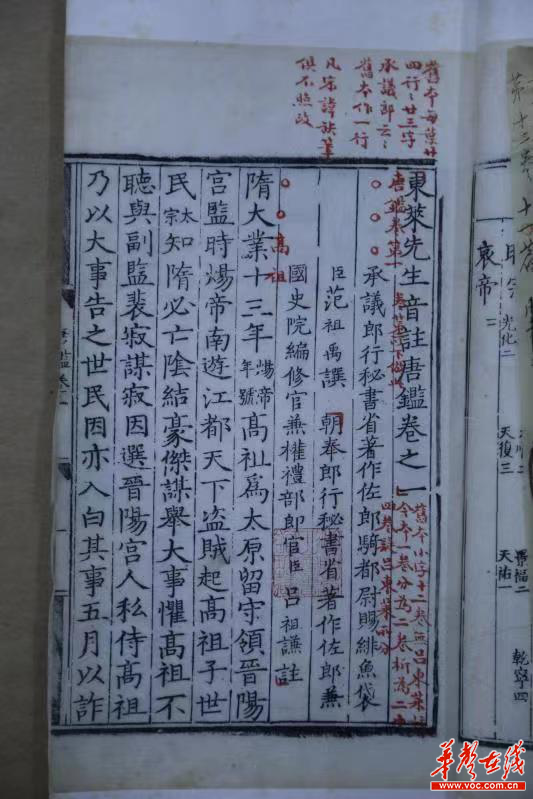 舊本每葉廿
四行、行廿三字
承議郎云云
舊本作一行
凡宋諱缺筆
俱不照改
東萊先生音註唐鑑卷之一
唐鑑卷第一
舊本小字十二卷無呂東萊註
今本一卷分為二卷析為二十
四卷
承議郎行秘書省著作佐郎騎都尉賜緋魚袋
臣范祖禹譔
朝奉郎行秘書省著作佐郎兼
國史院編修官兼權禮部郎官臣呂祖謙註
高祖
隋大業十三年煬帝年號高祖爲太原留守領晉陽
宮監時煬帝南遊江都天下盗賊起高祖子世
民太宗知隋必亡陰結豪傑謀舉大事懼高祖不
聽與副監裴寂謀寂因選晉陽宮人私侍高祖
乃以大事告之世民因亦入白其事五月以詐
唐鑑卷一
第十三卷
光化二
天復三
天祐一
景福二
乾寧四
哀帝二
華聲在线
www.voc.com.cn